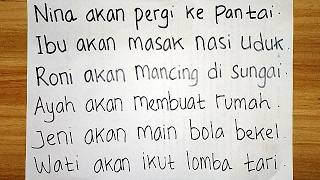 Nina akan pergi ke Pantai.
Ibu akan masak nasi Uduk.
Roni akan Mancing di sungai.
Ayah akan membuat rumah.
Jeni akan main bola bekel.
Wati akan ikut lomba tari.